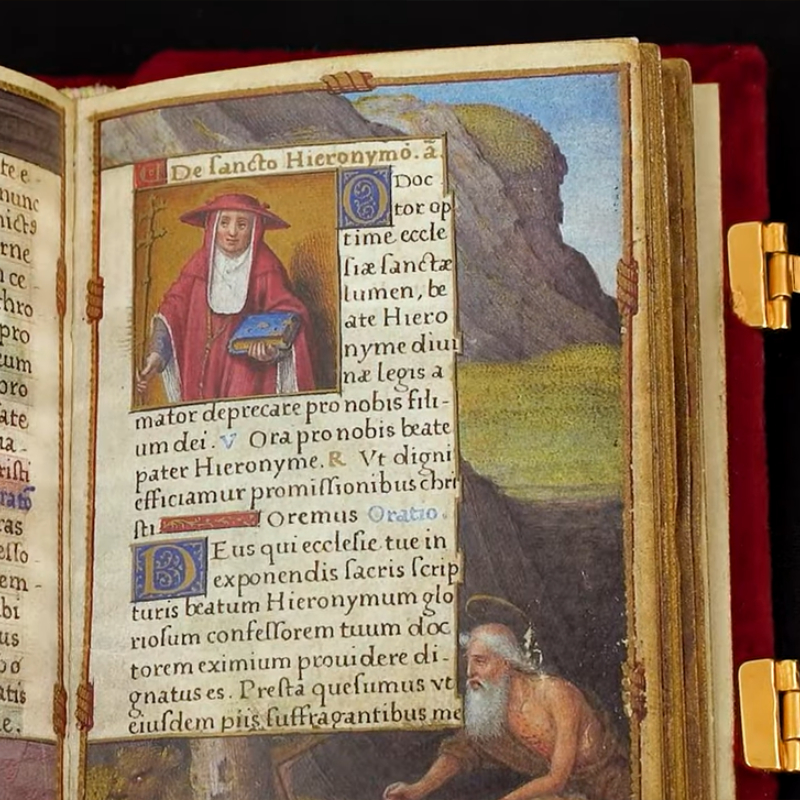 te e-
nunc
rne
n ce
pro
eum
pro
ate
na-
risti
ras
esso
em-
bi
us
atis
e.
De sancto Hieronymo. ā.
O Doc
tor op
time eccle
siæ sanctæ
lumen, be
ate Hiero
nyme diui
næ legis a
mator deprecare pro nobis fili-
um dei. V Ora pro nobis beate
pater Hieronyme. R Vt digni
efficiamur promissionibus chri
sti. Oremus Oratio.
DEus qui ecclesie tue in
exponendis sacris scrip
turis beatum Hieronymum glo
riosum confessorem tuum doc
torem eximium prouidere di-
gnatus es. Presta quesumus vt
eiusdem piis suffragantibus me